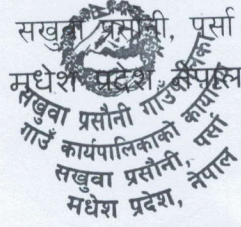 सखुवा प्रसौनी, पर्सा
मधेश प्रदेश, नेपाल
सखुवा प्रसौनी गाउँपालिका
गाउँ कार्यपालिकाको कार्यालय
सखुवा प्रसौनी, पर्सा
मधेश प्रदेश, नेपाल